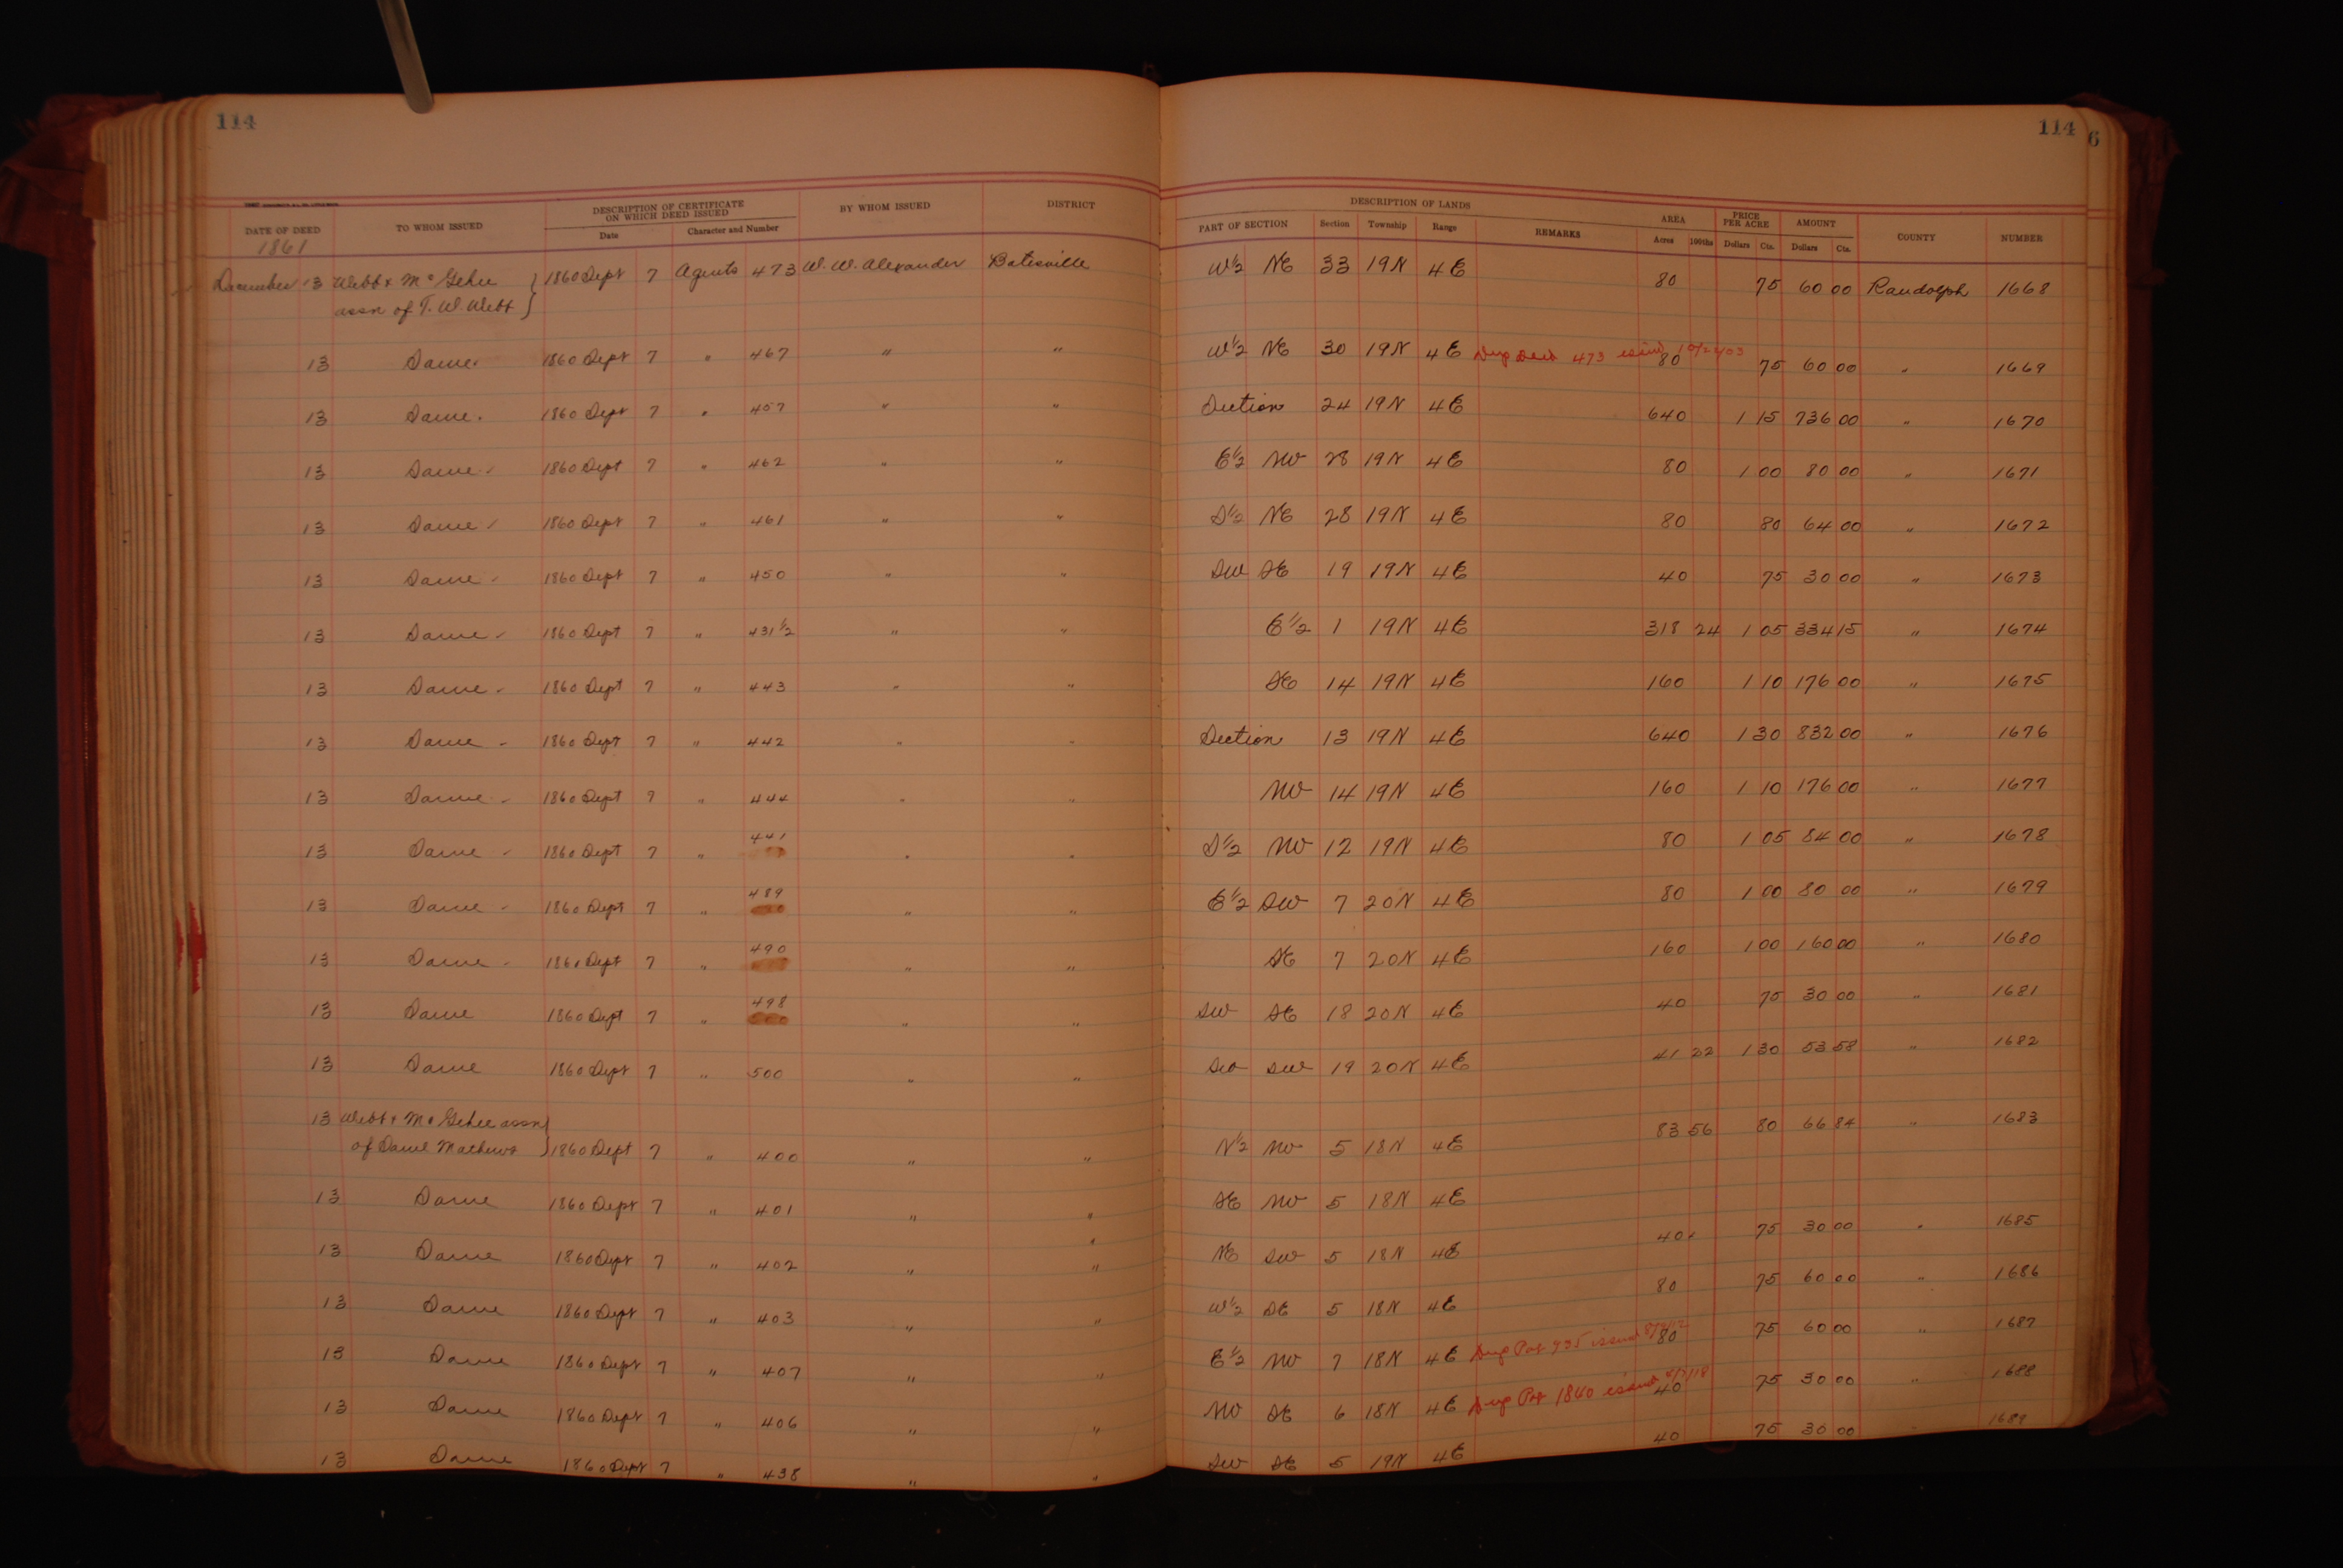 114
114
6
DATE OF DEED
TO WHOM ISSUED
DESCRIPTION OF CERTIFICATE
ON WHICH DEED ISSUED
Date
Character and Number
BY WHOM ISSUED
DISTRICT
DESCRIPTION OF LANDS
PART OF SECTION
Section
Township
Range
REMARKS
AREA
Acres
100ths
PRICE
PER ACRE
Dollars
Cts.
AMOUNT
Dollars
Cts.
COUNTY
NUMBER
1861
December 13 Webb & McGehee 1860 Sept 7 Agents 473 W. W. Alexander Batesville W½ NE 33 19N 4E 80 75 60 00 Randolph 1668
assn of T. W. Webb
13 Same 1860 Sept 7 " 467 " " W½ NE 30 19N 4E Dup Deed 473 issued 80 75 60 00 " 1669
13 Same 1860 Sept 7 " 457 " " Section 24 19N 4E 640 1 15 736 00 " 1670
13 Same 1860 Sept 7 " 462 " " E½ NW 28 19N 4E 80 1 00 80 00 " 1671
13 Same 1860 Sept 7 " 461 " " S½ NE 28 19N 4E 80 80 64 00 " 1672
13 Same 1860 Sept 7 " 450 " " SW SE 19 19N 4E 40 75 30 00 " 1673
13 Same 1860 Sept 7 " 431½ " " E½ 1 19N 4E 318 24 1 05 334 15 " 1674
13 Same 1860 Sept 7 " 443 " " SE 14 19N 4E 160 1 10 176 00 " 1675
13 Same 1860 Sept 7 " 442 " " Section 13 19N 4E 640 1 30 832 00 " 1676
13 Same 1860 Sept 7 " 444 " " NW 14 19N 4E 160 1 10 176 00 " 1677
13 Same 1860 Sept 7 " 441 " " S½ NW 12 19N 4E 80 1 05 84 00 " 1678
13 Same 1860 Sept 7 " 489 " " E½ SW 7 20N 4E 80 1 00 80 00 " 1679
13 Same 1860 Sept 7 " 490 " " SE 7 20N 4E 160 1 00 160 00 " 1680
13 Same 1860 Sept 7 " 498 " " SW SE 18 20N 4E 40 75 30 00 " 1681
13 Same 1860 Sept 7 " 500 " " SW SW 19 20N 4E 41 22 1 30 53 58 " 1682
13 Webb & McGehee assn
of Saml Mathews 1860 Sept 7 " 400 " " N½ NW 5 18N 4E 83 56 80 66 84 " 1683
13 Same 1860 Sept 7 " 401 " " SE NW 5 18N 4E
13 Same 1860 Sept 7 " 402 " " NE SW 5 18N 4E 40 75 30 00 " 1685
13 Same 1860 Sept 7 " 403 " " W½ SE 5 18N 4E 80 75 60 00 " 1686
13 Same 1860 Sept 7 " 407 " " E½ NW 7 18N 4E Dup Pat 935 issued 80 75 60 00 " 1687
13 Same 1860 Sept 7 " 406 " " NW SE 6 18N 4E Dup Pat 1840 issued 40 75 30 00 " 1688
13 Same 1860 Sept 7 " 438 " " SW SE 5 19N 4E 40 75 30 00 1689